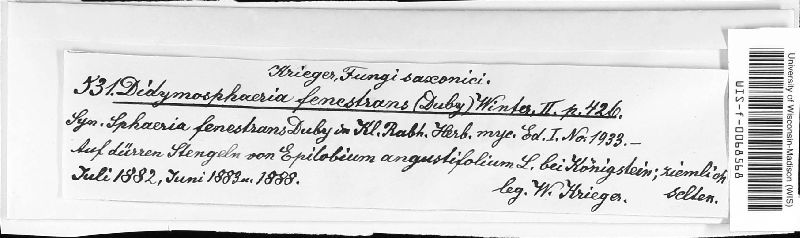 Krieger, Fungi saxonici.
531. Didymosphaeria fenestrans (Duby) Winter, II. p. 426.
Syn. Sphaeria fenestrans Duby in Kl. Rabh. Herb. myc. Ed. I. No. 1933. —
Auf dürren Stengeln von Epilobium angustifolium L. bei Königstein; ziemlich selten.
Juli 1882, Juni 1883 u. 1888.
leg. W. Krieger.
University of Wisconsin-Madison (WIS)
WIS-f-0068568